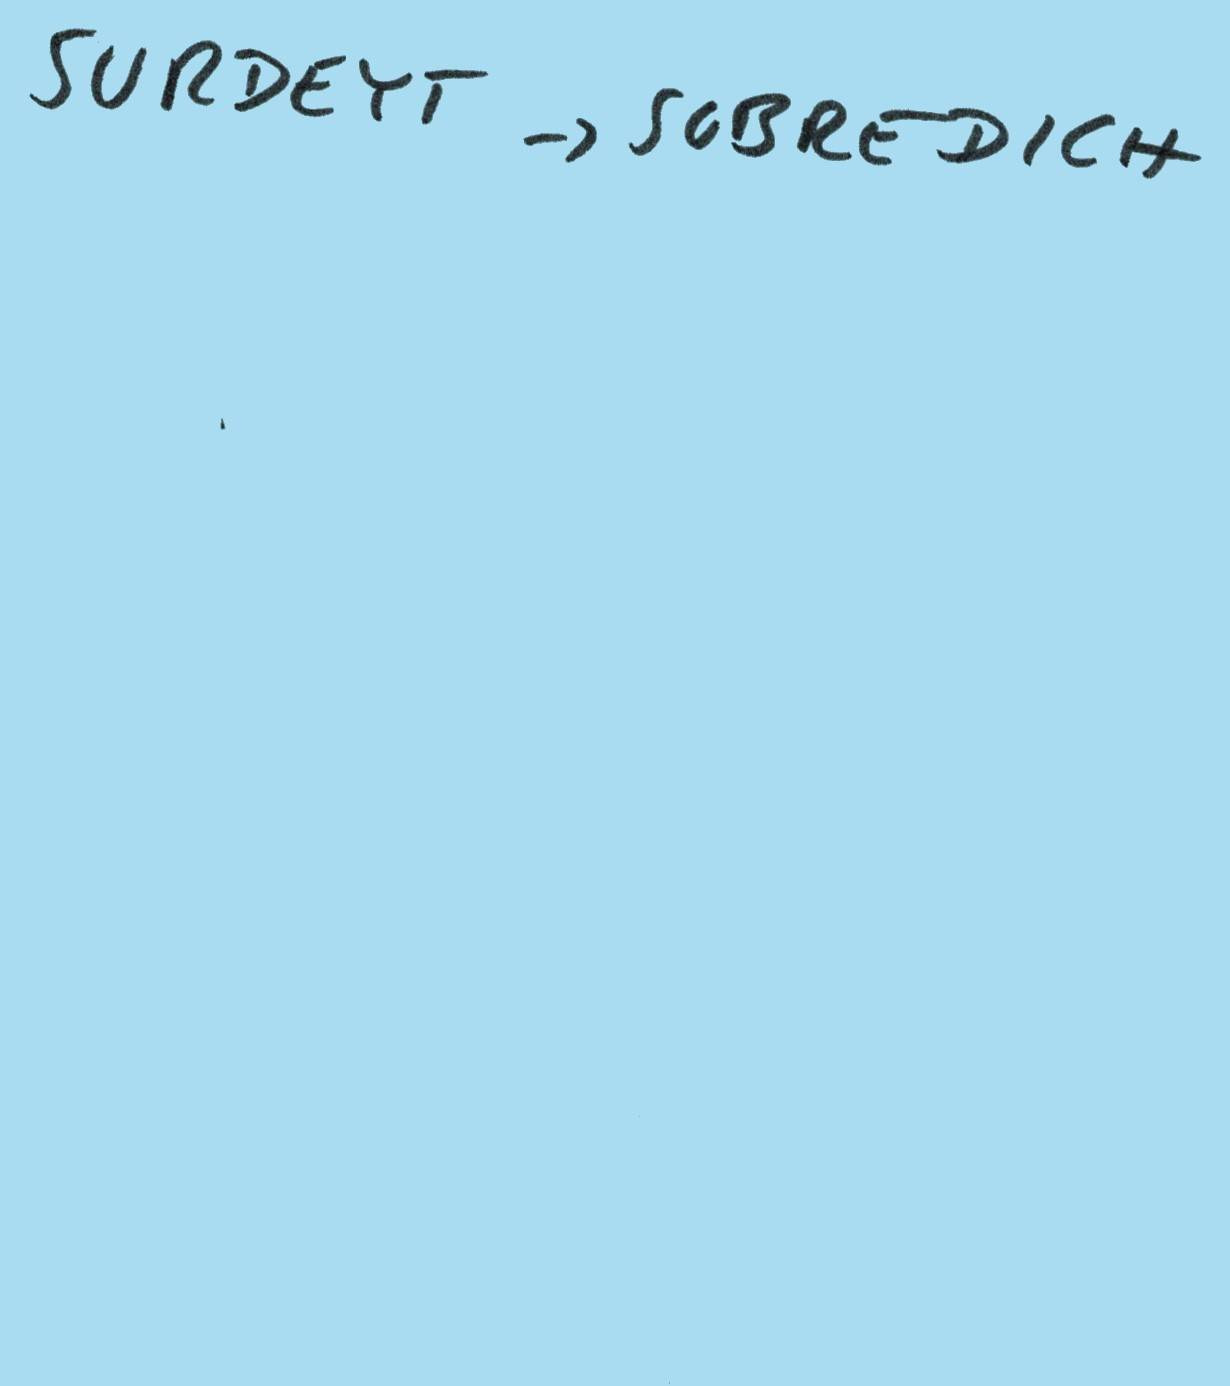 SURDEYT -> SOBREDICH